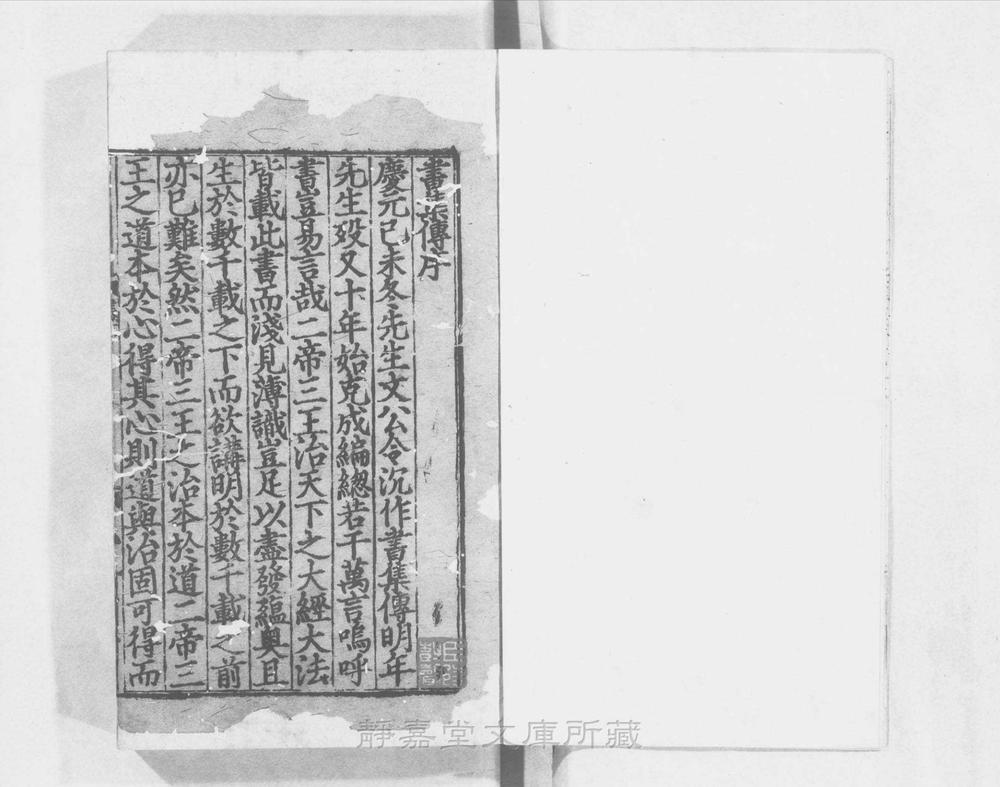 書集傳序
慶元己未冬先生文公令沉作書集傳明年
先生歿又十年始克成編緫若干萬言嗚呼
書豈易言哉二帝三王治天下之大經大法
皆載此書而淺見薄識豈足以盡發藴奧且
生於數千載之下而欲講明於數千載之前
亦已難矣然二帝三王之治本於道二帝三
王之道本於心得其心則道與治固可得而
靜嘉堂文庫所藏